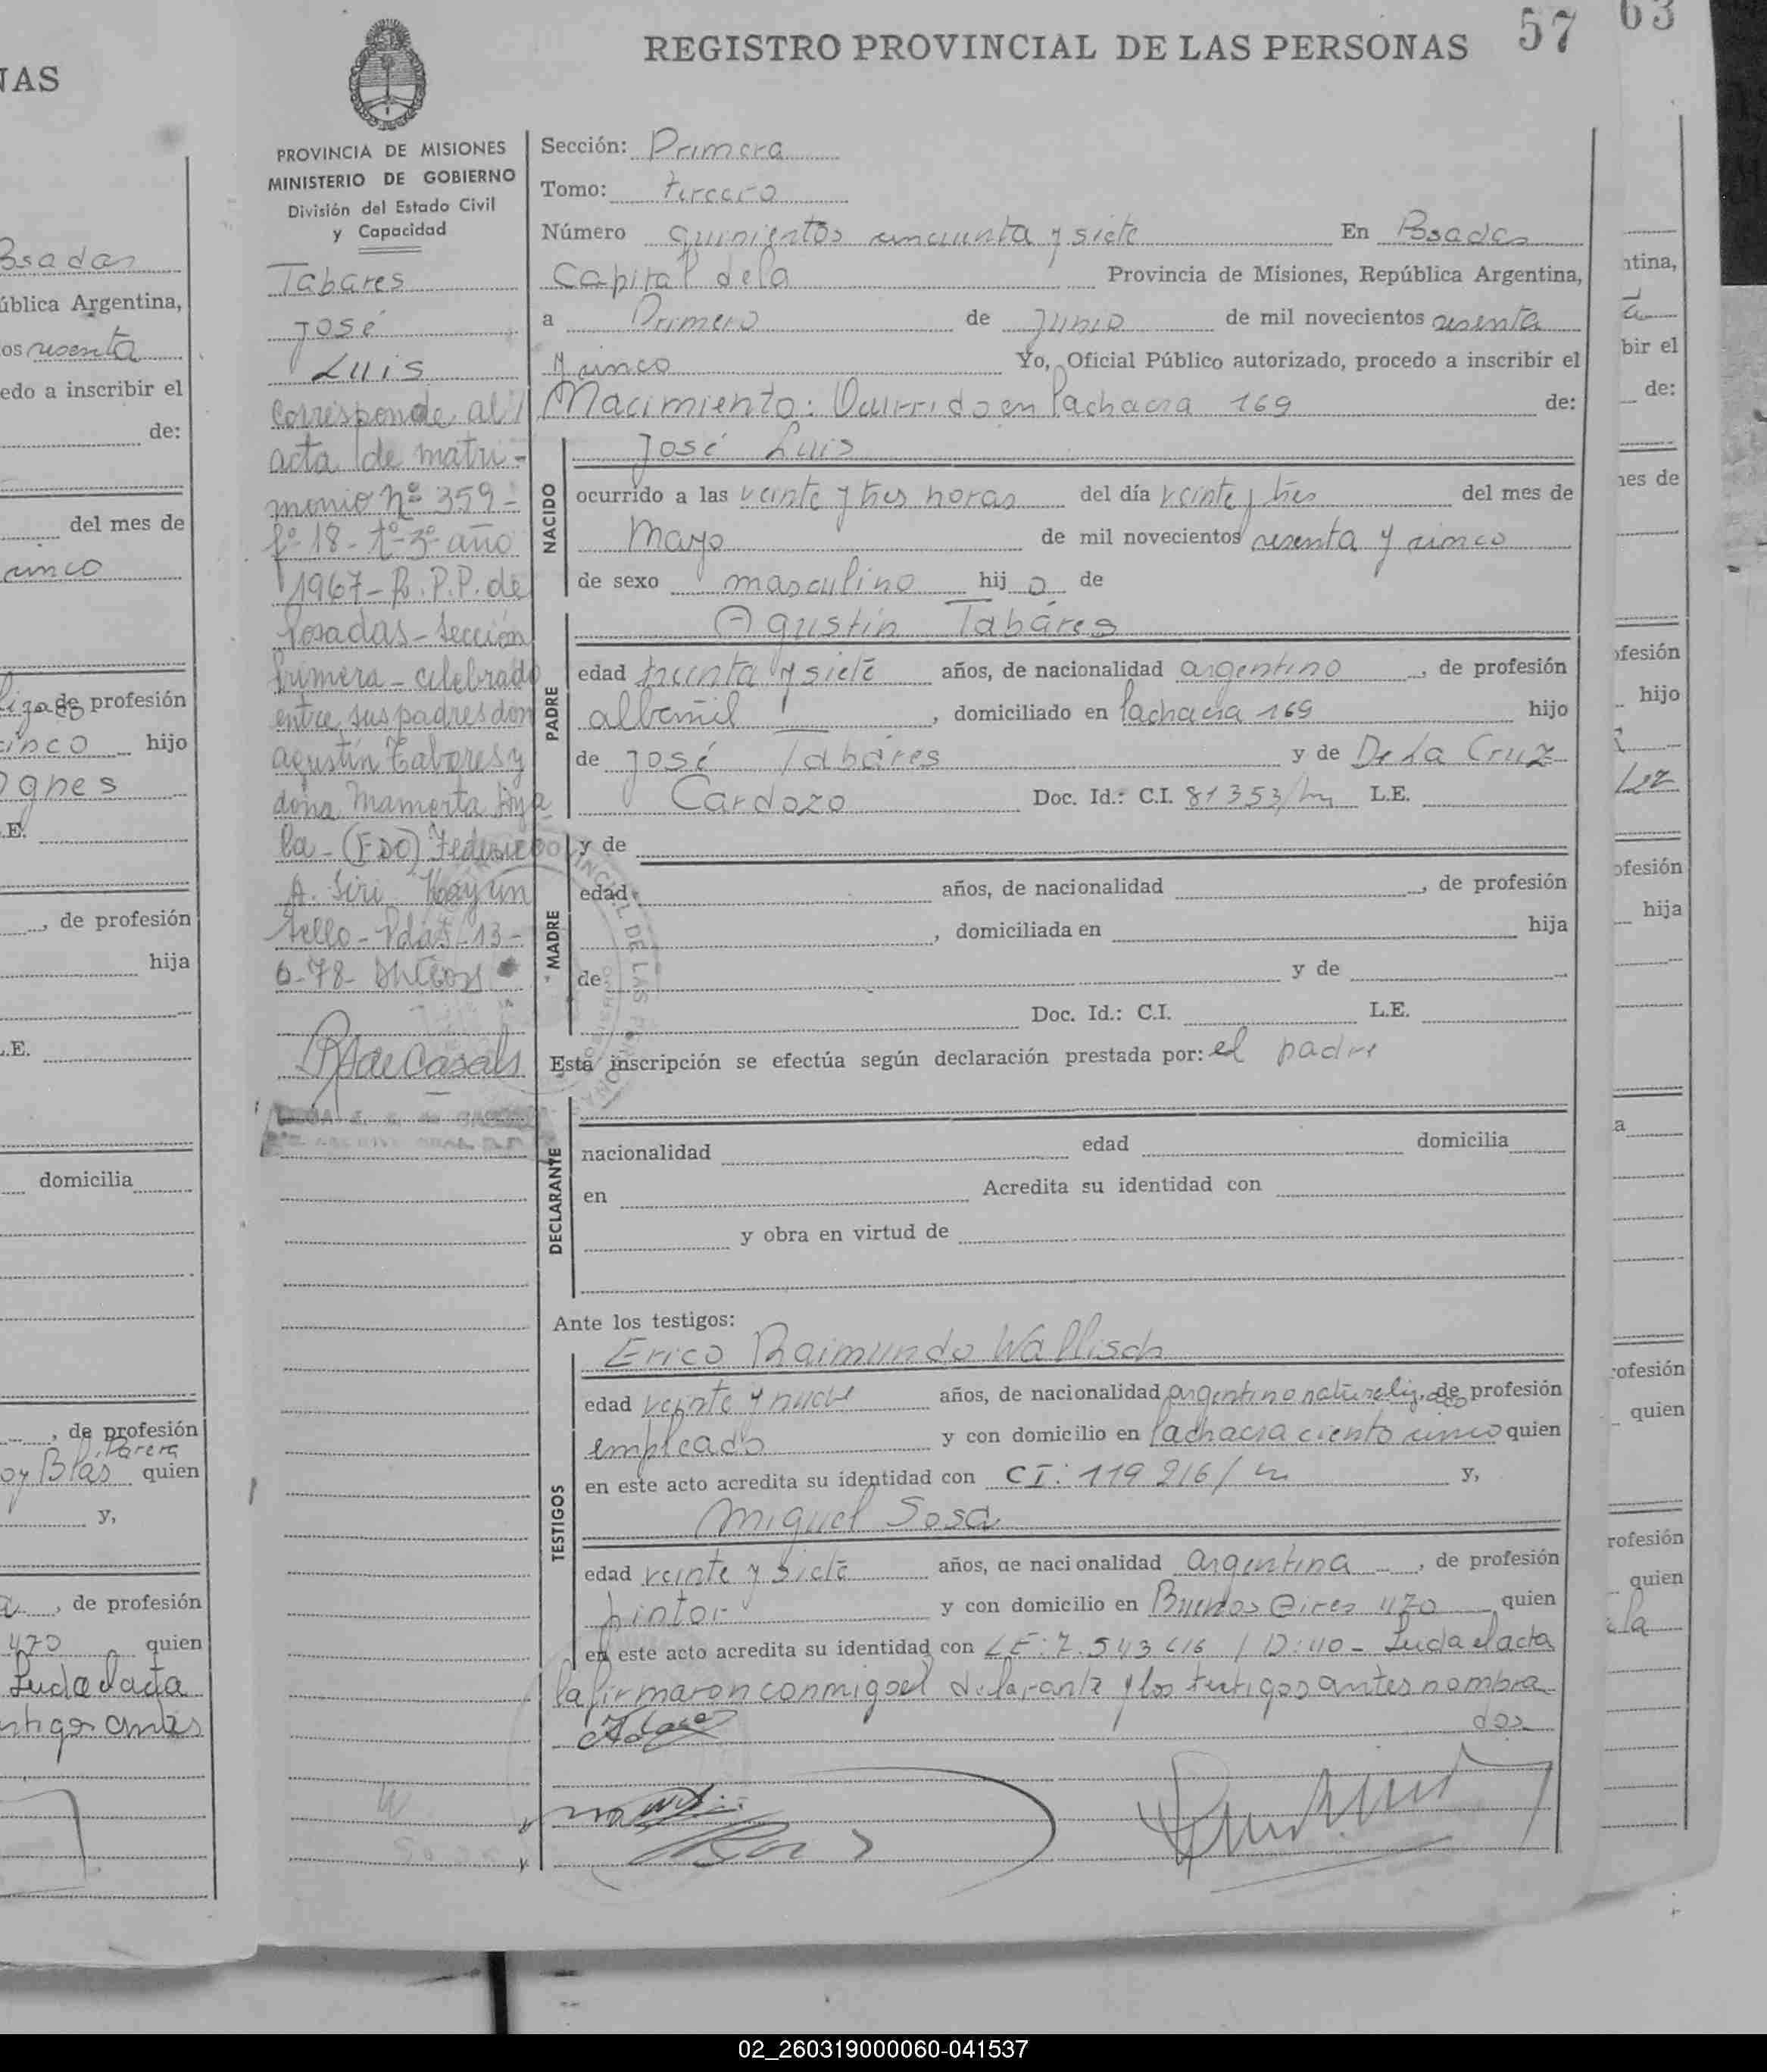 REGISTRO PROVINCIAL DE LAS PERSONAS
57
63
PROVINCIA DE MISIONES
MINISTERIO DE GOBIERNO
División del Estado Civil
y Capacidad
Tabares
José
Luis
Corresponde al
acta de matri-
monio Nº 359-
fº 18- tº 3º año
1967- R.P.P. de
Posadas- Sección
Primera- celebrado
entre sus padres don
Agustín Tabares y
doña Mamerta Aya
la- (FDO) Federico
A. Siri.
Tello- Pdas-13-
6-78-
Sección: Primera
Tomo: tercero
Número quinientos cincuenta y siete En Posadas
Capital de la Provincia de Misiones, República Argentina,
a Primero de Junio de mil novecientos sesenta
y cinco Yo, Oficial Público autorizado, procedo a inscribir el
Nacimiento: Ocurrido en Lachacra 169 de:
NACIDO
José Luis
ocurrido a las veinte y tres horas del día veinte y tres del mes de
Mayo de mil novecientos sesenta y cinco
de sexo masculino hijo de
PADRE
Agustín Tabáres
edad treinta y siete años, de nacionalidad argentino, de profesión
albañil, domiciliado en Lachacra 169 hijo
de José Tabáres y de De La Cruz
Cardozo Doc. Id.: C.I. 81353/m L.E.
MADRE
y de
edad años, de nacionalidad , de profesión
, domiciliada en hija
de y de
Doc. Id.: C.I. L.E.
Esta inscripción se efectúa según declaración prestada por: el padre
DECLARANTE
nacionalidad edad domicilia
en Acredita su identidad con
y obra en virtud de
Ante los testigos:
TESTIGOS
Erico Raimundo Wallisch
edad veinte y nueve años, de nacionalidad argentino naturalizado, de profesión
empleado y con domicilio en Lachacra ciento cinco quien
en este acto acredita su identidad con CI: 119216/m y,
Miguel Sosa
edad veinte y siete años, de nacionalidad argentina, de profesión
pintor y con domicilio en Buenos Aires 470 quien
en este acto acredita su identidad con LE: 7.543.616 / D:40- Leida el acta
la firmaron conmigo el declarante y los testigos antes nombra
dos
02_260319000060-041537